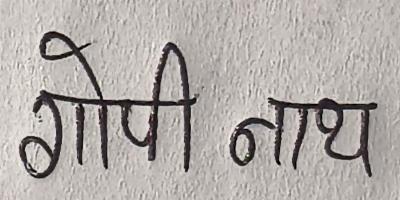 गोपी नाथ